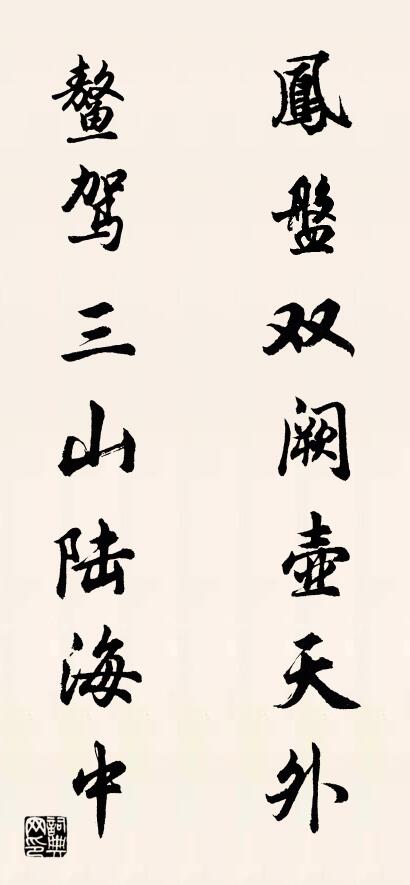 鳳盤双阙壺天外
鳌驾三山陆海中
詞典网印